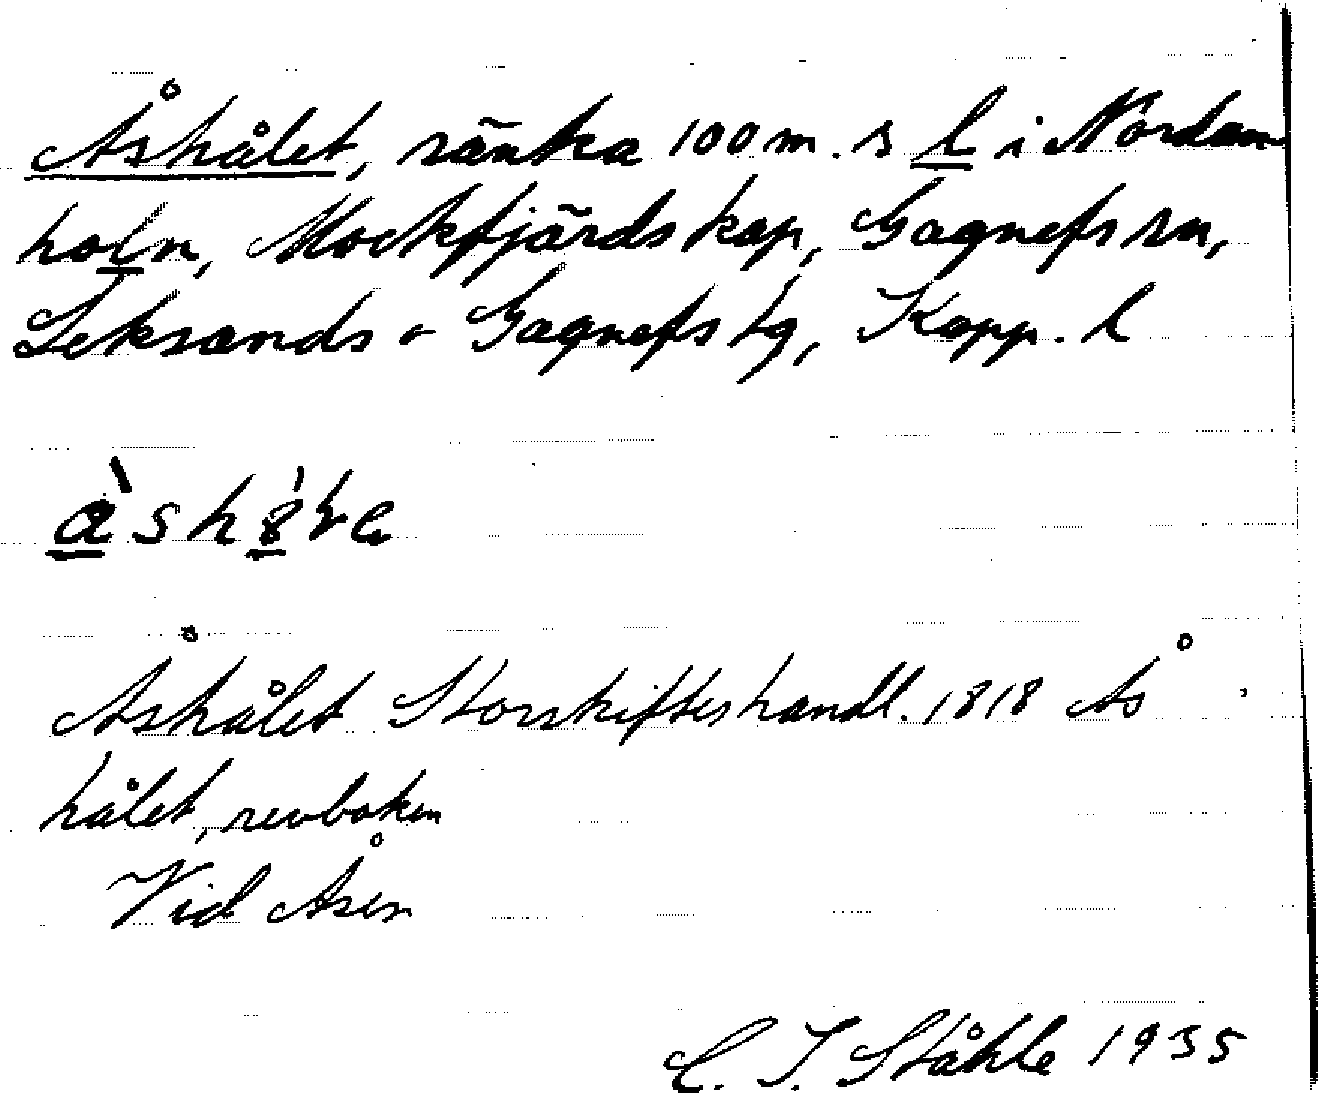 Åshålet, sänka 100 m. s l i Nordan
holn, Mockfjärds kap, Gagnefs sn,
Leksands o Gagnefs tg, Kopp. l
Åshålet Storskifteshandl. 1818 Ås
hålet, revboken
Vid Åsen
C. I. Ståhle 1935